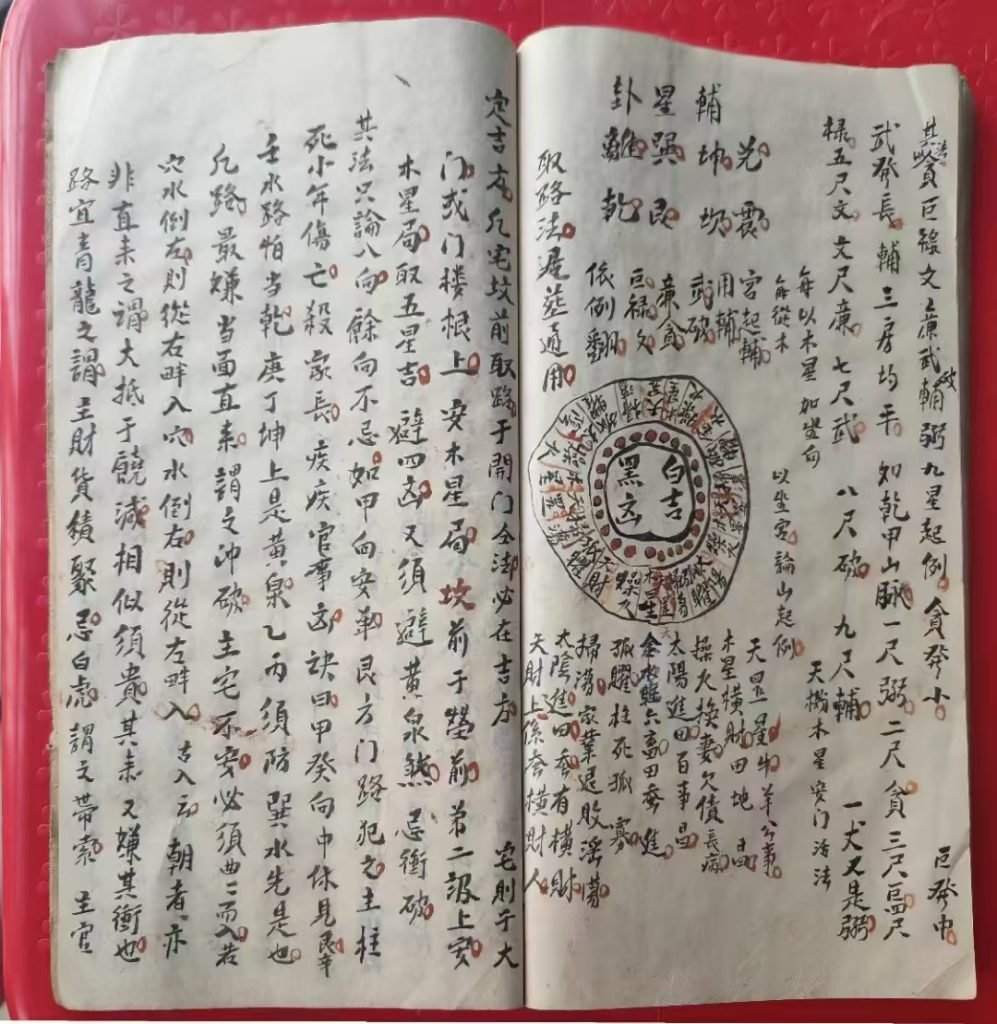 其法以貪巨祿文廉武破輔弼九星起例貪發小 巨發中
武發長輔三房均平如乾甲山脉一尺弼二尺貪三尺巨四尺
祿五尺文六尺廉七尺武八尺破九尺輔一丈又是弼
天機木星安门活法
每以木星加坐向 以坐宮論山起例
每從木
宮起輔
用輔
武破
廉貪
巨祿文
依例翻
輔 兌震
星 坤坎
卦 巽艮
離乾
取路法遅葬通用
白吉
黑凶
天罡一星牛羊公事
木星橫財田地昌
燥火換妻欠債長病
太陽進田百事昌
金水臨六畜田蚕進
孤曜柱死孤寡
掃蕩家業退敗淫蕩
太陰進田蚕有橫財
天財上係蚕橫財人
定吉方凡宅坟前取路于開门仝法必在吉方 宅則于大
门或门楼根上安木星局坟前于塋前第二級上安
木星局取五星吉避四凶又須避黃泉煞忌衝破
其法只論八向餘向不忌如甲向安乾艮方门路犯之主柱
死小年傷亡殺家長疾疾官事凶訣曰甲癸向中休見艮辛
壬水路怕当乾庚丁坤上是黃泉乙丙須防巽水先是也
凡路最嫌当面直来謂之沖破主宅不安必須曲二而入若
穴水倒左則從右畔入穴水倒右則從左畔入 古人云朝者亦
非直来之謂大抵于饒減相似須貴其来又嫌其衝也
路宜青龍之謂主財貨積聚忌白虎謂之帶索 主官